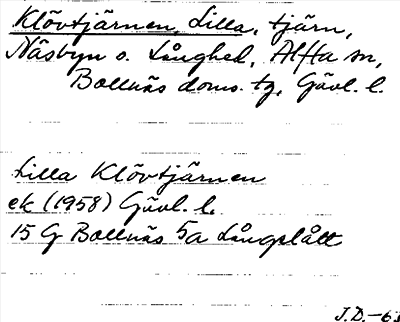 Klövtjärnen, Lilla, tjärn,
Näsbyn o. Långhed, Alfta sn,
Bollnäs doms. tg, Gävl. l.
Lilla Klövtjärnen
ek (1958) Gävl. l.
15 G Bollnäs 5a Långslått
J.D.-63